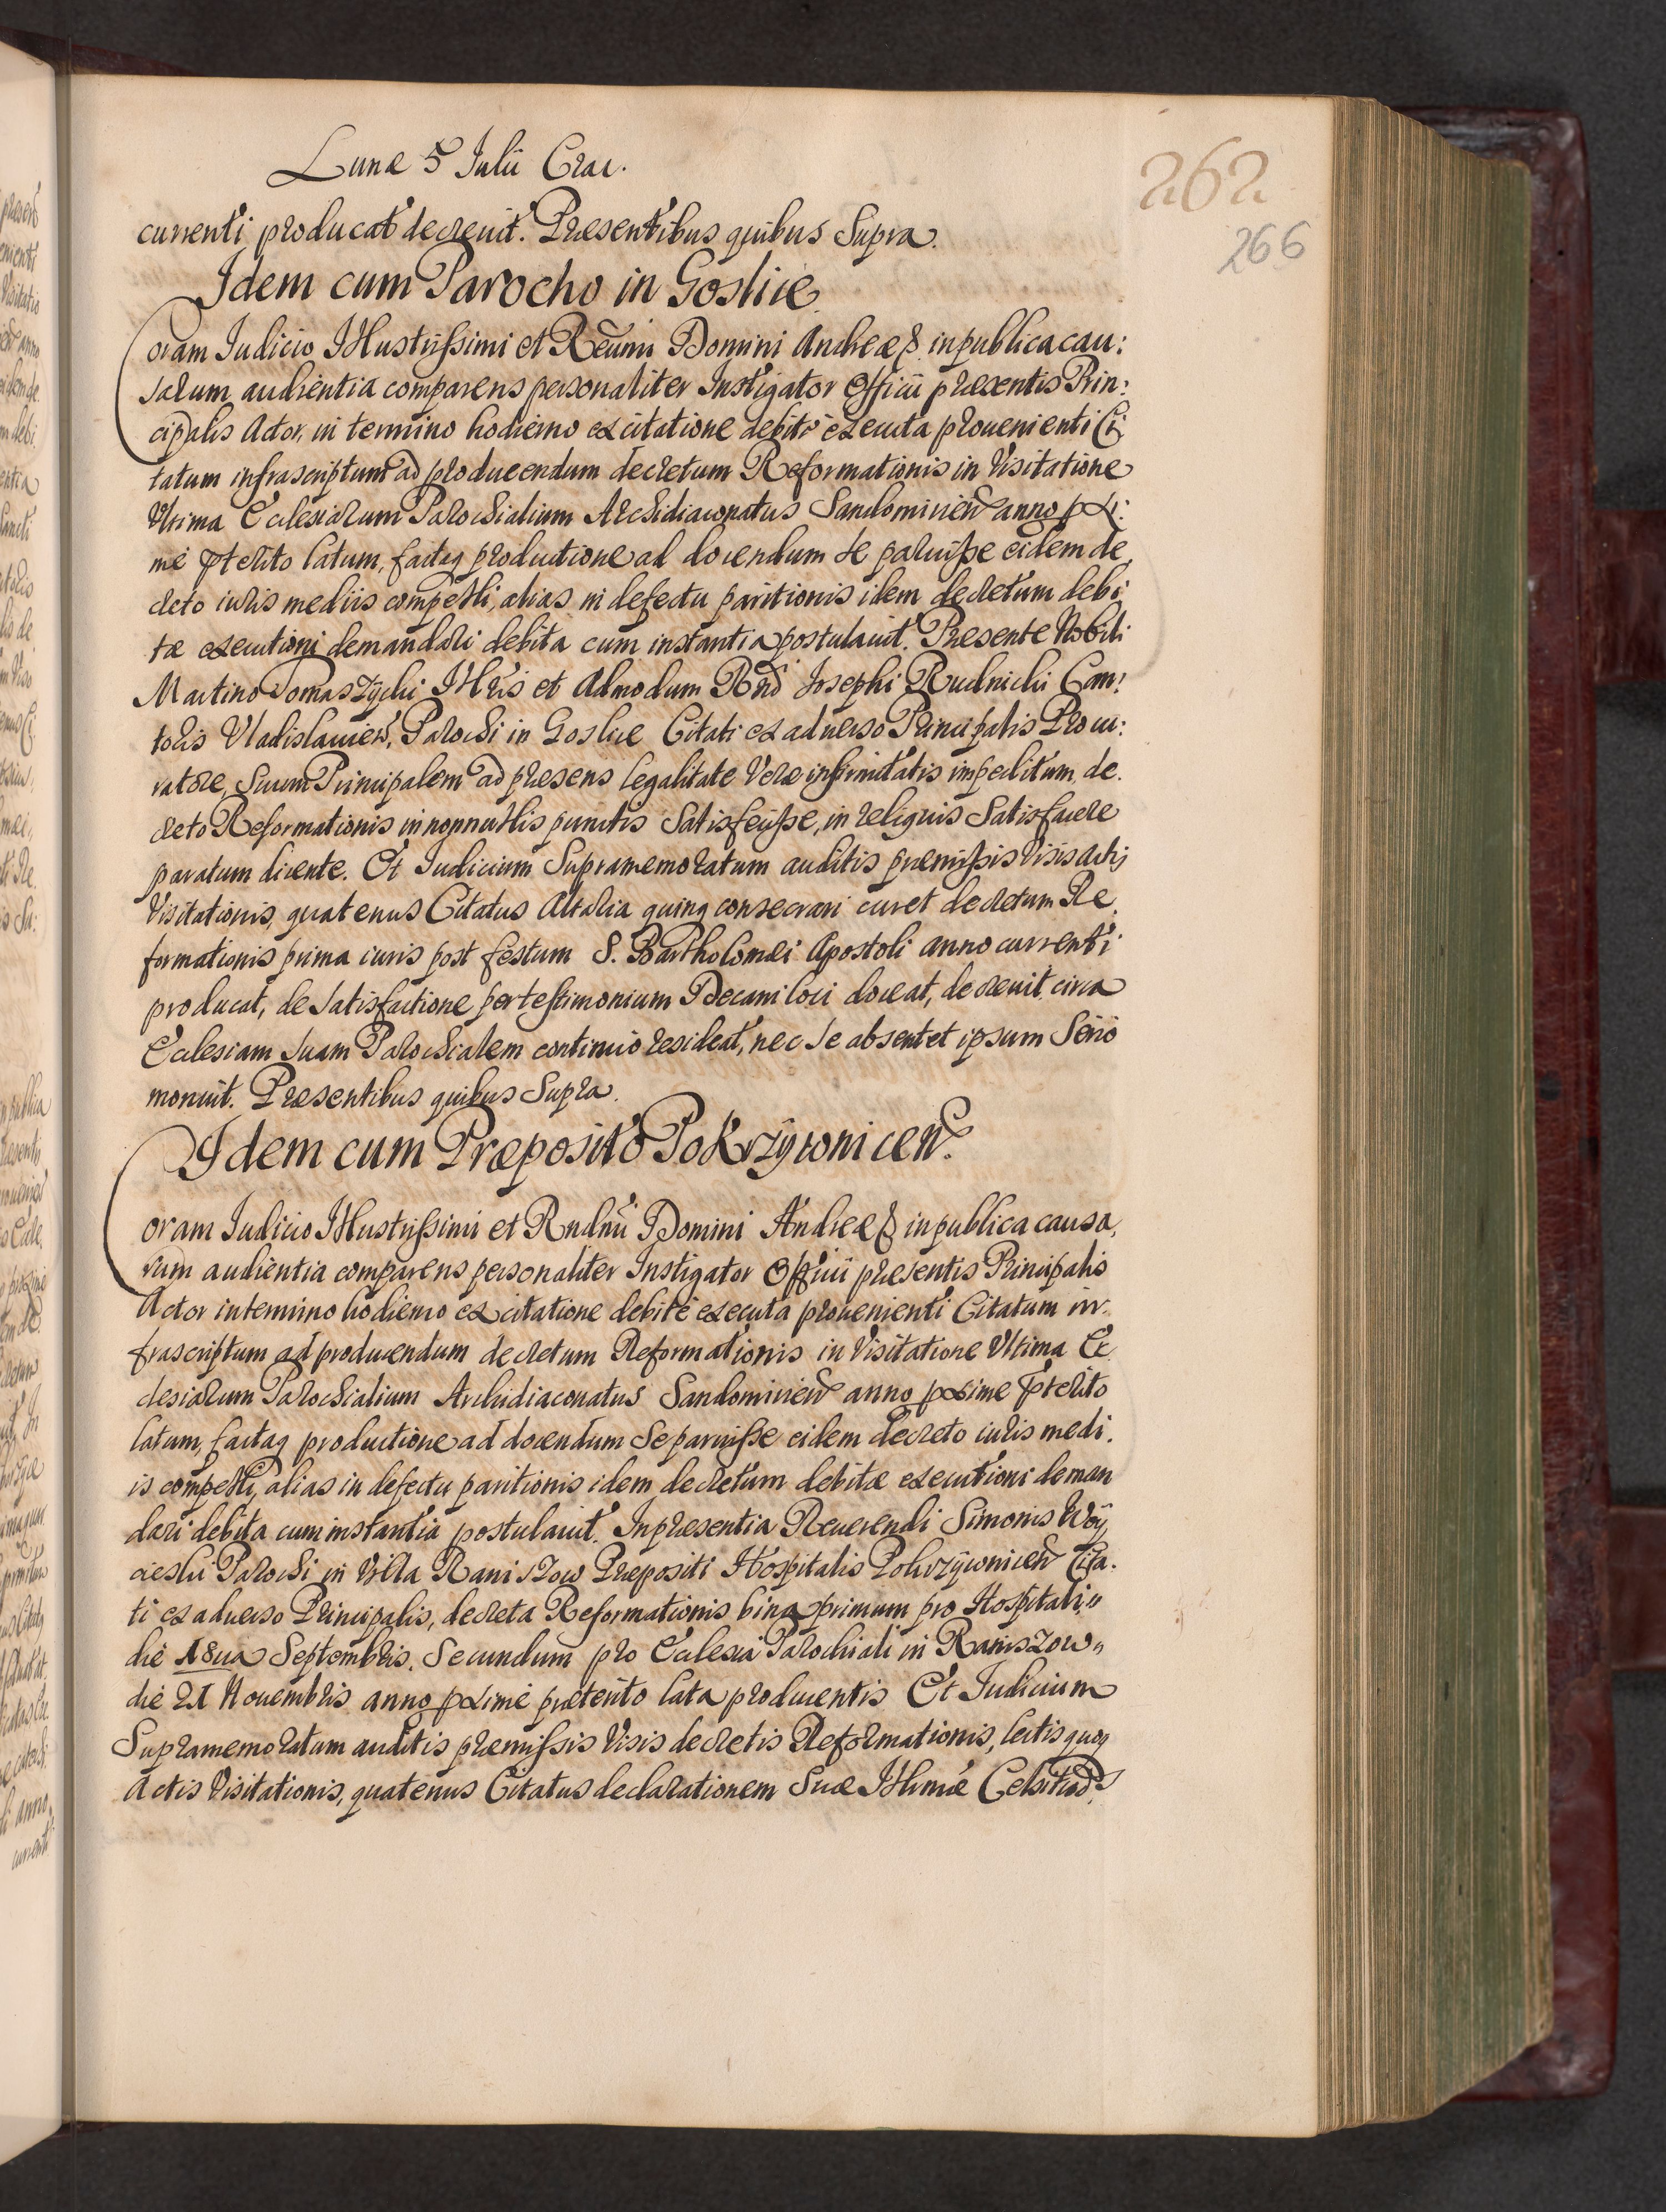 Lunæ 5 Iulii Crac.
262
266
currenti producat decreuit. Præsentibus quibus Supra.
Idem cum Parocho in Goslice
Coram Iudicio Illustrissimi et Reumi Domini Andreæ & in publica cau:
sarum audientia comparens personaliter Instigator Officii præsentis Prin:
cipalis Actor, in termino hodierno ex citatione debite executa prouenienti Ci
tatum infrascriptum ad producendum decretum Reformationis in Visitatione
Vltima Ecclesiarum Parochialium Archidiaconatus Sandomirien anno pxi:
me pterito latum, factaq productione ad docendum se paruisse eidem de
creto iuris mediis compelli, alias in defectu paritionis idem decretum debi
tæ executioni demandari debita cum instantia postulauit. Præsente Nobili
Martino Tomaszÿcki Illris et Admodum Rndi Iosephi Rudnicki Can:
toris Vladislauien, Parochi in Goslice Citati ex aduerso Principalis Procu:
ratore, Suum Principalem ad præsens legalitate Veræ infirmitatis impeditum, de
creto Reformationis in nonnullis punctis Satisfecisse, in reliquis Satisfacere
paratum dicente. Et Iudicium Supramemoratum auditis præmissis Visis actis
Visitationis, quatenus Citatus Altaria quinq consecrari curet decretum Re
formationis prima iuris post festum S. Bartholomæi Apostoli anno currenti
producat, de Satisfactione per testimonium Decani loci doceat, decreuit, circa
Ecclesiam suam Parochialem continuo resideat, nec se absentet ipsum Serio
monuit. Præsentibus quibus Supra.
Idem cum Præposito Pokrzÿwnicen.
Coram Iudicio Illustrissimi et Rndmi Domini Andreæ & in publica causa,
rum audientia comparens personaliter Instigator Officii præsentis Principalis
Actor in termino hodierno ex citatione debite executa prouenienti Citatum in
frascriptum ad producendum decretum Reformationis in Visitatione Vltima Ec
clesiarum Parochialium Archidiaconatus Sandomirien anno pxime pterito
latum, factaq productione ad docendum Se paruisse eidem decreto iuris medi
is compelli, alias in defectu paritionis idem decretum debitæ executioni deman
dari debita cum instantia postulauit. In præsentia Reuerendi Simonis Woÿ
cieski Parochi in Villa Raniszow Præpositi Hospitalis Pokrzÿwnicen Cita
ti ex aduerso Principalis, decreta Reformationis bina primum pro Hospitali
die 18ua Septembris, Secundum pro Ecclesia Parochiali in Raniszow
die 21 Nouembris anno pxime præterito lata producentis. Et Iudicium
Supramemoratum auditis præmissis Visis decretis Reformationis, lectis quoq
Actis Visitationis, quatenus Citatus declarationem Suæ Illmæ Celsitud.